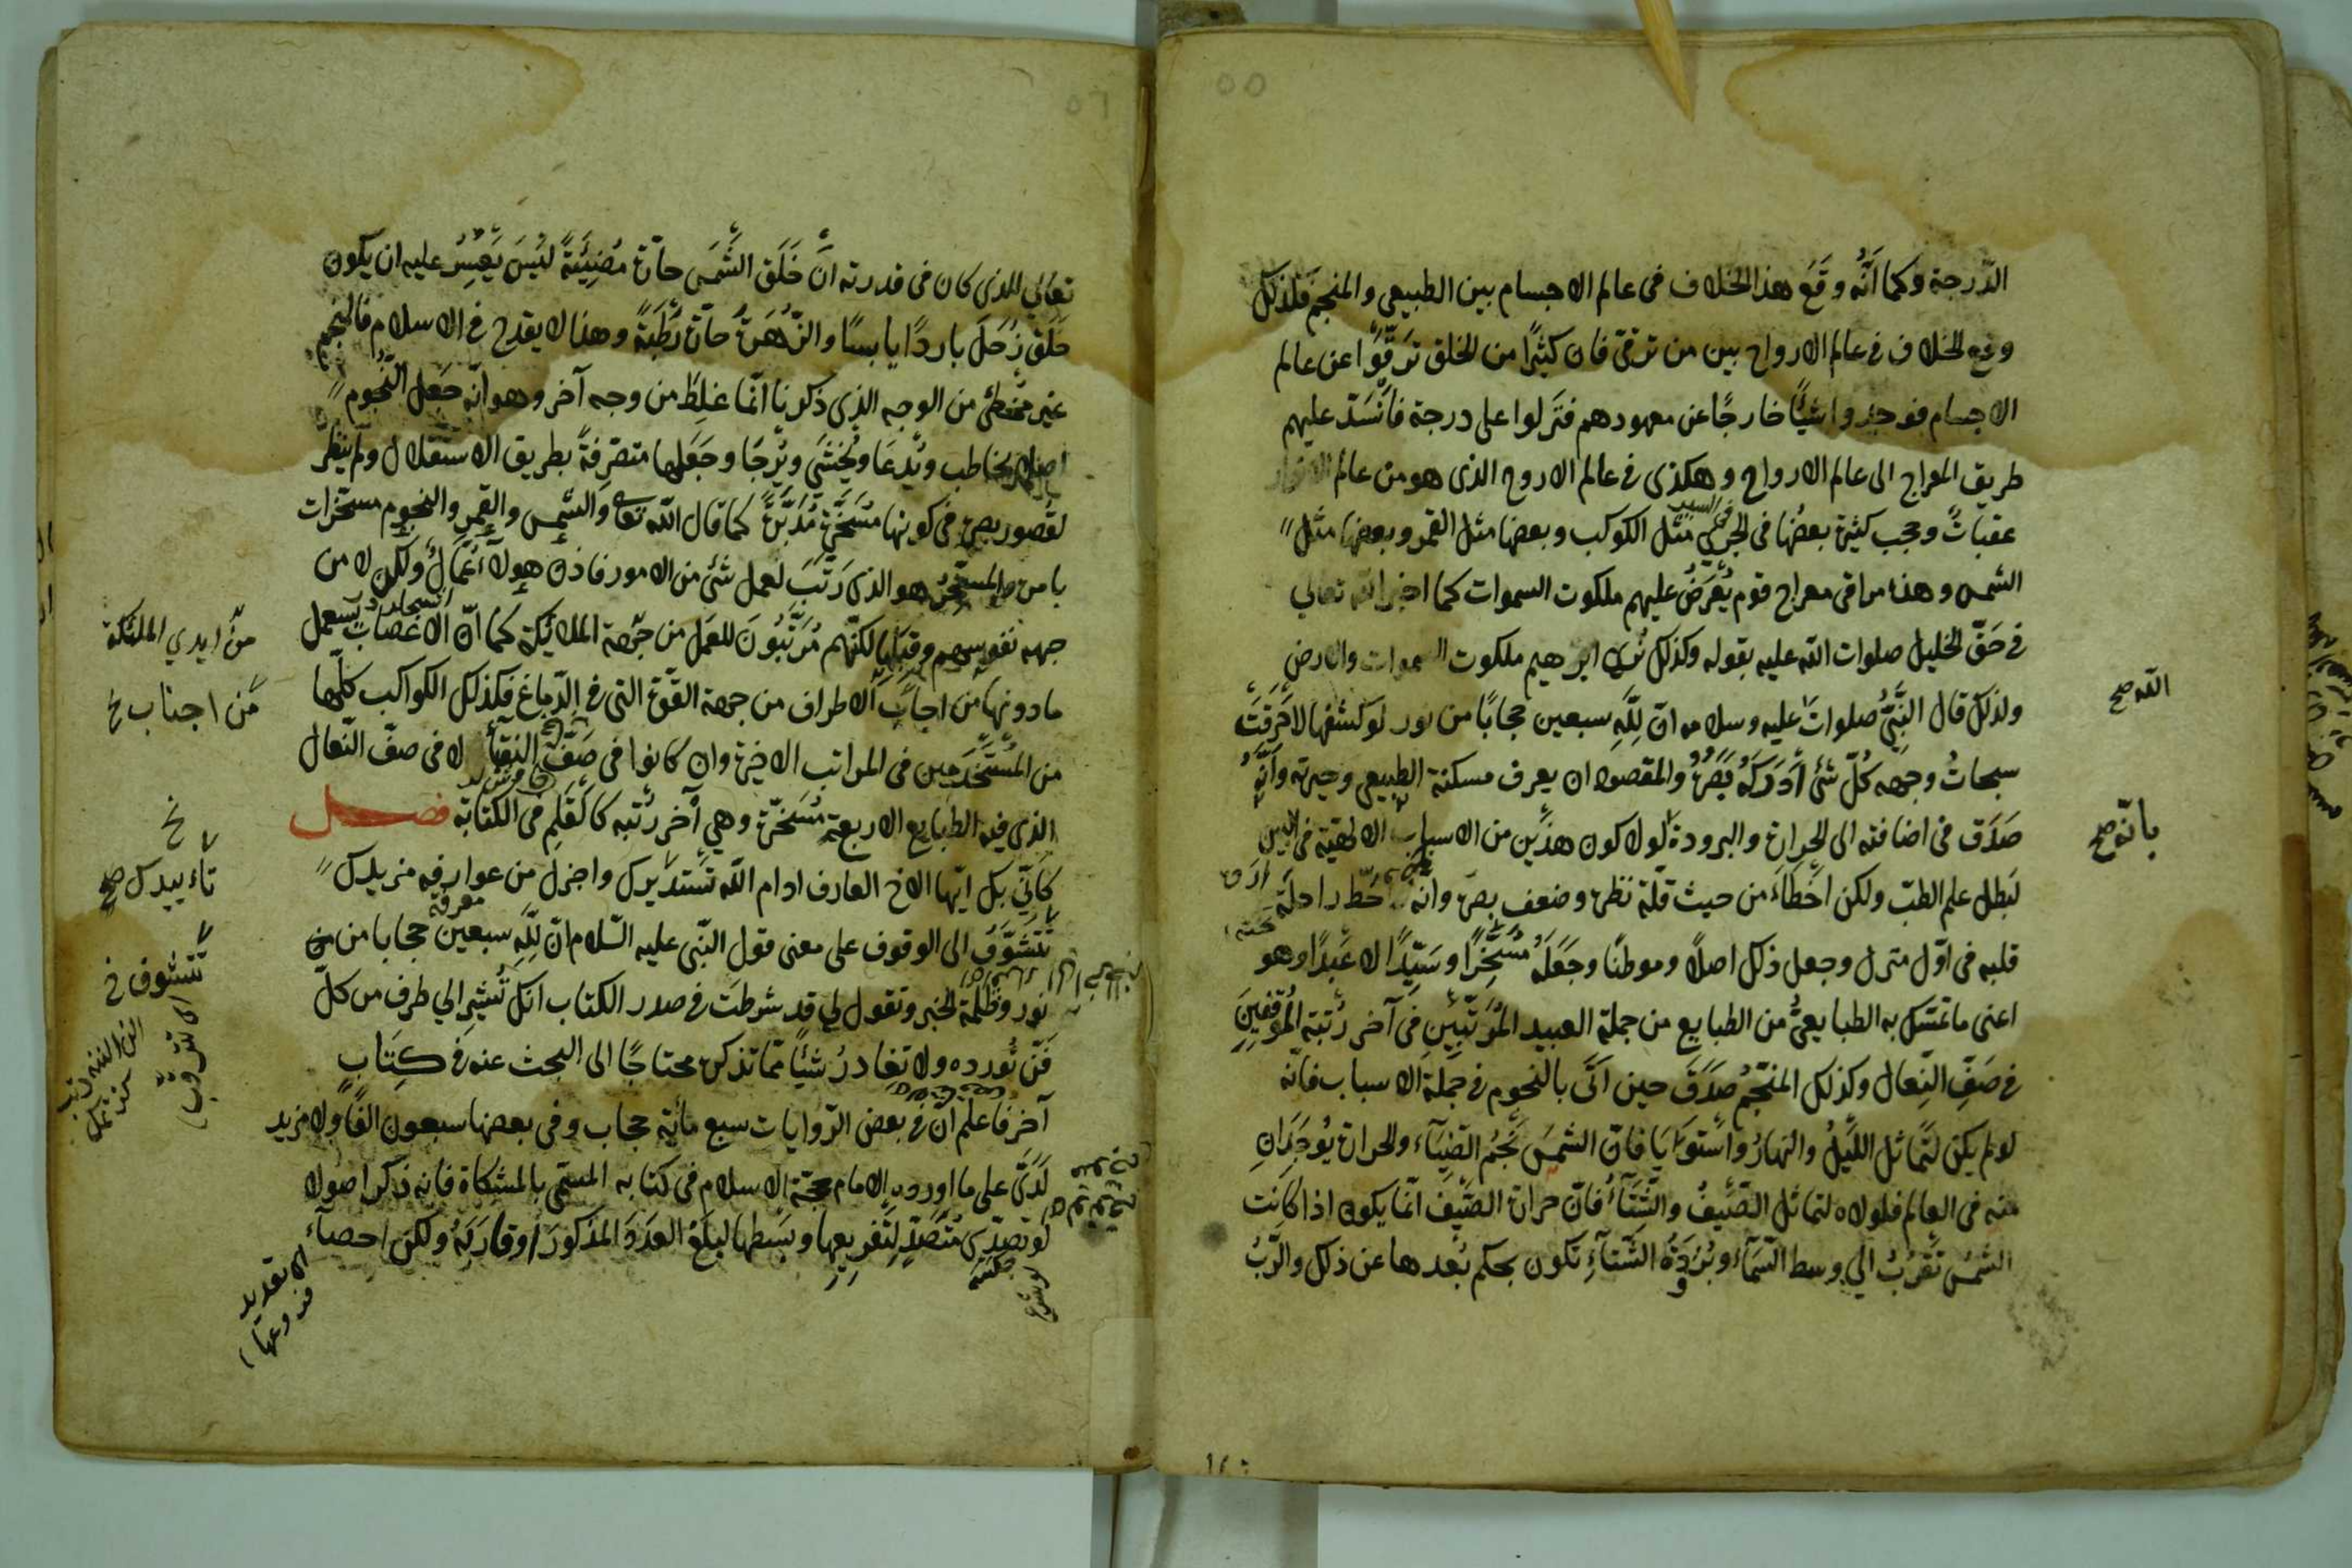 ٥٥
الدّرجة وكما أنّه وقَعَ هذا الخلاف في عالم الاجسام بين الطبيعي والمنجم فلذلك
وقع الخلاف في عالم الارواح بين من ترقّى فان كثيرًا من الخلق ترقّوا عن عالم
الاجسام فوجدوا شيئًا خارجًا عن معهودهم فنزلوا على درجة فانسدّ عليهم
طريق المعراج الى عالم الارواح وهكذى في عالم الاروح الذى هو من عالم الانوار
عقبات وحجب كثيرة بعضها فى مثل الكوكب وبعضها مثل القمر وبعضها مثل
الشمس وهذه مراقى معراج قوم يُعرَضُ عليهم ملكوت السموات كما اخبر الله تعالي
في حَقّ الخليل صلوات الله عليه بقوله وكذلك نُرى ابرهيم ملكوت السموات والارض
ولذلك قال النَّبيُّ صلوات عليه وسلامه انّ لِلّهِ سبعين حجابًا من نور لو كشفها لاحرقَتْ
الله صح
سبحاتُ وجهه كُلّ شئ أدركهُ بَصَرُه والمقصود ان يعرف مسكنة الطبيعي وحيرته وأنّه
صَدَق في اضافته الى الحرارة والبرودة لولا كون هذَين من الاسباب الالهية في البين
بانّه صح
لبَطل علم الطبّ ولكن اخْطَاءَ من حيث قلّة نظره وضعف بصره وانّه حَطّ راحلَة
قلبه في اوّل منزل وجعل ذلك اصلًا وموطنًا وجَعَلَهُ مُسَخِّرًا وسَيّدًا لا عَبدًا وهو
اعنى ما تمسّك به الطبايعيُّ من الطبايع من جملة العبيد المُرَتَّبين في آخر رُتبة المُوقفِينَ
في صَفِّ النِّعال وكذلك المنجّمُ صدَقَ حين اتَى بالنجوم في جملة الاسباب فانّه
لو لم يكن لتَماثل اللَّيلُ والنهارُ واستَوَيَا فانّ الشمسَ نَجمُ الضِّيَاء والحرارة يُوجَدَانِ
منه في العالم فلولاه لتماثل الصَّيفُ والشِّتَآءُ فانّ حرارة الصَّيفَ انّما يكون اذا كانت
الشمسُ تقرُبُ الي وسط السَّمَآء وبُرُودَةُ الشِّتآءِ تكون بحكم بُعدها عن ذلك والرّبُّ
٥٦
تعالي الذى كان في قدرته أنَّ خَلَق الشَّمسَ حارّة مُضِيئَةً لَيْسَ يَعسِرُ عليه ان يكون
خلَق زُحَلَ باردًا يابسًا والزُّهرةُ حارّة رَطْبَةً وهذا لا يقدح في الاسلام فالمنجم
غير مخطئ من الوجه الذي ذكرنا انّما غلِطَ من وجه آخر وهو انّه جعل النُّجوم
يخاطب ويُدعَا ويُخشَى ويُرجَا وجَعَلها متصرّفةً بطريق الاستقلال ولم ينظر
لقُصور بصره في كونها مُسَخَّرَةً مُدَبَّرَةً كما قال الله تعا والشمس والقمر والنجوم مسخّرات
بامره والمسخّر هو الذى رَتّبَ لعمل شئ من الامور فاذن هولآء عُمّالٌ ولكن لا من
جهه نفوسهم وقبلها لكنّهم مُرَتَّبُونَ للعمل من جهة الملائكة كما انّ الاعصاب يستعمل
من ايدي الملئكة
ما دونها من اجانب الاطراف من جهة القوّة التى في الدّماغ فكذلك الكواكب كلّها
من اجناب خ
من المُسَخَّرين في المراتب الاخيرة وان كانوا في صَفّ النقبآء لا في صفّ النّعال
الذى فيه الطبايع الاربعة مُسَخَّرة وهي آخر رُتبة كالقلم في الكتابة فصل
كأنّي بك ايّها الاخ العارف ادام الله تَسْتديرك واجزل من عوارفه مزيدك
خ
تاءييدك صح
تَتَشَوَّفُ الى الوقوف على معنى قول النّبى عليه السّلام انّ لِلّهِ سبعين حجابا من
معرفة
تتشوف خ
نور وظُلمة الخبر وتقول لي قد شرطتَ في صدر الكتاب انك تُشير الي طرف من كلّ
فَنّ تُورده ولا تغادرُ شيئًا ممّا تذكره محتاجًا الى البحث عنه في كِتَابٍ
آخر فاعلم انّ في بعض الرّوايات سبع مأيه حجاب وفي بعضها سبعون الفًا ولا مزيد
لَدَيَّ على ما اورده الامام حجّة الاسلام في كتابه المسمّى بالمشكاة فانه ذكر اصولا
لو تصدّى مُتَصَدٍّ لتفريعها وبَسطها لبلغ العدَدَ المذكورَ أو قارَبَهُ ولكن احصآء